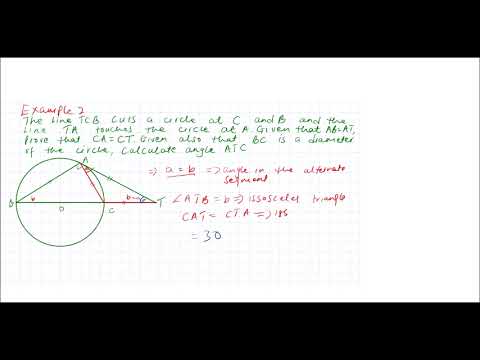 Example 2
The line TCB cuts a circle at C and B and the
line TA touches the circle at A. Given that AB=AT,
Prove that CA=CT. Given also that BC is a diameter
of the circle, Calculate angle ATC
A
⇒ a = b ⇒ angle in the alternate
segment
B
O
C
T
∠ATB = b ⇒ issosceles triangle
CAT = CTA ⇒
= 30